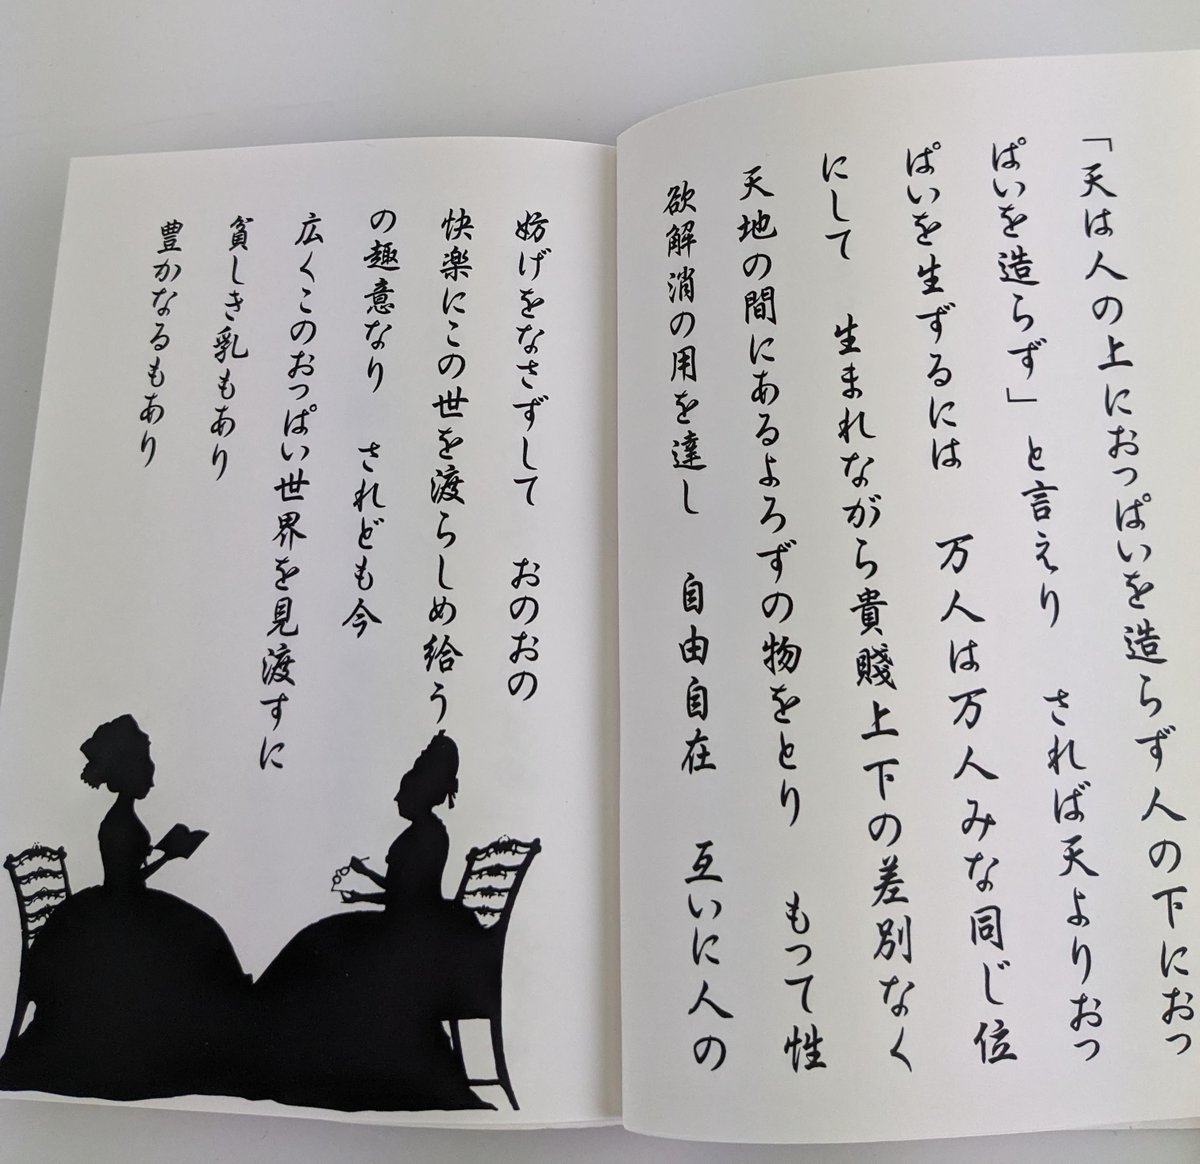 「天は人の上におっぱいを造らず人の下におっ
ぱいを造らず」と言えり　されば天よりおっ
ぱいを生ずるには　万人は万人みな同じ位
にして　生まれながら貴賤上下の差別なく
天地の間にあるよろずの物をとり　もって性
欲解消の用を達し　自由自在　互いに人の
妨げをなさずして　おのおの
快楽にこの世を渡らしめ給う
の趣意なり　されども今
広くこのおっぱい世界を見渡すに
貧しき乳もあり
豊かなるもあり